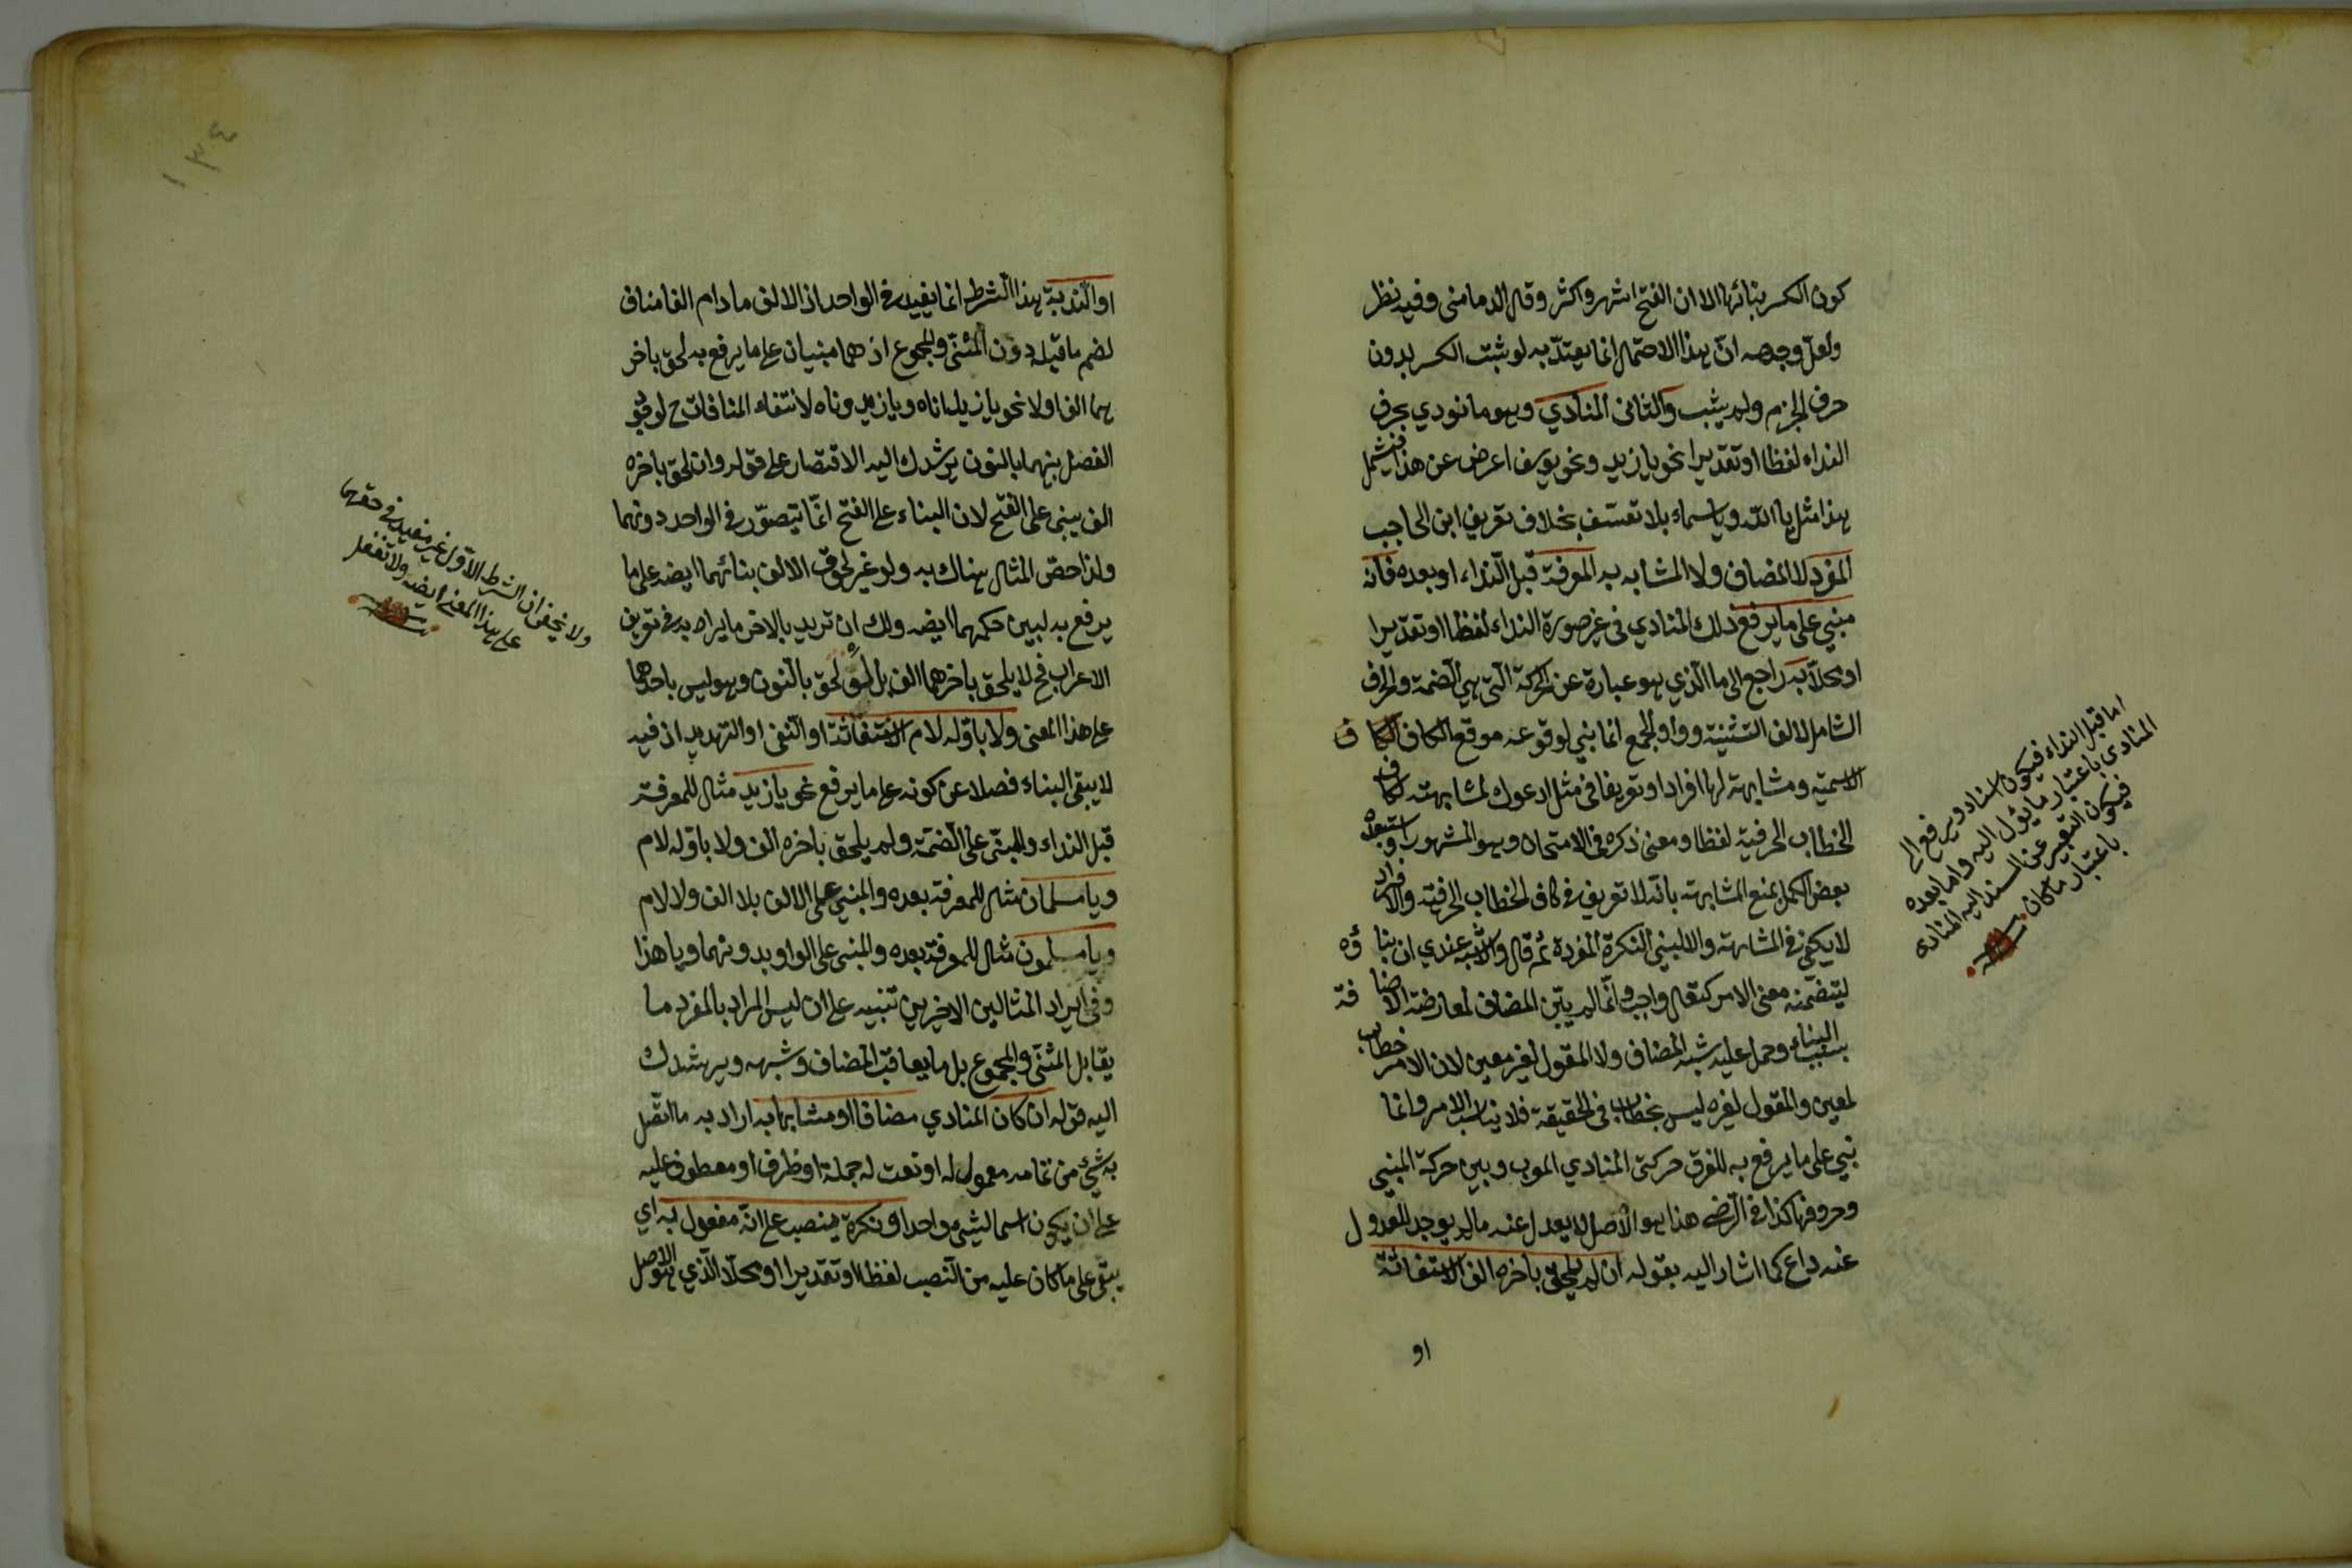 كون الكسر بنائها الا ان الفتح اشهر واكثر وقال الدمامنى وفيه نظر
ولعل وجهه انّ هذا الاحتمال انما يعتدّ به لو ثبت الكسر بدون
حرف الجزم ولم يثبت والثانى المنادي وهو ما نودي بحرف
النداء لفظا او تقديرا نحو يا زيد ونحو يوسف اعرض عن هذا فيشمل
هذا مثل يا الله ويا سماء بلا تعسّف بخلاف تعريف ابن الحاجب
المفرد لا المضاف ولا المشابه به المعرفة قبل النداء او بعده فانّه
مبني على ما يرفع ذلك المنادي فى غير صورة النداء لفظا او تقديرا
او محلّا به راجع الى ما الذي هو عبارة عن الحركة التى هي الضمة والحرف
الشامل لالف التثنية وواو الجمع انما بني لوقوعه موقع الكاف
الاسمية ومشابهته لها افرادا وتعريفا فى مثل ادعوك لمشابهته لكاف
الخطاب الحرفية لفظا ومعنى ذكره فى الامتحان وهو المشهور واستبعده
بعض الكمل بمنع المشابهة بانّه لا تعريف فى كاف الخطاب الحرفية والافراد
لا يكفى فى المشابهة والا لبني النكرة المفردة ثم قال والاشبه عندي ان بناؤه
ليتضمنه معنى الامر كتعال واجب وانّما لم يبن المضاف لمعارضة الاضافة
بسبب البناء وحمل عليه شبه المضاف ولا المقول لغير معين لان الامر خطاب
لمعين والمقول لغيره ليس بخطاب فى الحقيقة فلا يناسب الامر وانما
بني على ما يرفع به للفرق حركتى المنادي المعرب وبين حركة المبني
وحروفها كذا فى الرضى هذا هو الاصل لا يعدل عنه ما لم يوجد للعدول
عنه داع كما اشار اليه بقوله ان لم يلحق بآخره الف الاستغاثة
او
اما قبل النداء فيكون اسناد ويرفع الى
المنادى باعتبار ما يئول اليه واما بعده
فيكون التعبير عن المسند اليه المنادى
باعتبار ما كان
١٣٤
او الندبة هذا الشرط انما يفيد فى الواحد اذ الالف ما دام الفا مناف
لضم ما قبله دون المثنى والمجموع اذ هما مبنيان على ما يرفع به لحق باخر
هما الف او لا نحو يا زيداناه ويا زيدوناه لانتفاء المنافات ح لوقوع
الفصل بينهما بالنون يرشدك اليه الاقتصار على قوله وان لحق باخره
الف يبنى على الفتح لان البناء على الفتح انّما يتصوّر فى الواحد دونهما
ولذا خصّ المثال هناك به ولو غير لحوق الالف بنائهما ايضه على ما
يرفع به لبيين حكمهما ايضه ولك ان تريد بالاخر ما يراد به فى تعريف
الاعراب فح لا يلحق باخرهما الف بل لحق بالنون وهو ليس باحدهما
على هذا المعنى ولا باوّله لام الاستغاثة او التعجب او التهديد اذ فيه
لا يبقى البناء فضلا عن كونه على ما يرفع نحو يا زيد مثال للمعرفة
قبل النداء والمبنى على الضمّة ولم يلحق باخره الف ولا باوله لام
ويا مسلمان مثال للمعرفة بعده والمبني على الالف بلا الف ولا لام
ويا مسلمون مثال للمعرفة بعده والمبنى على الواو بدونهما ويا هذا
وفى ايراد المثالين الاخيرين تنبيه على ان ليس المراد بالمفرد ما
يقابل المثنى والمجموع بل ما يقابل المضاف وشبهه ويرشدك
اليه قوله ان كان المنادي مضافا او مشابها به اراد به ما اتّصل
به شيئ من تمامه معمول له او نعت له جملة او ظرف او معطوف عليه
على ان يكون اسما لشيئ واحد او نكرة ينصب على انّه مفعول به اي
يبقى على ما كان عليه من النصب لفظا او تقديرا او محلّا الّذي هو الاصل
ولا يخفى ان الشرط الاوّل غير مفيد فى حقهما
على هذا المعنى ايضه ولا تغفل